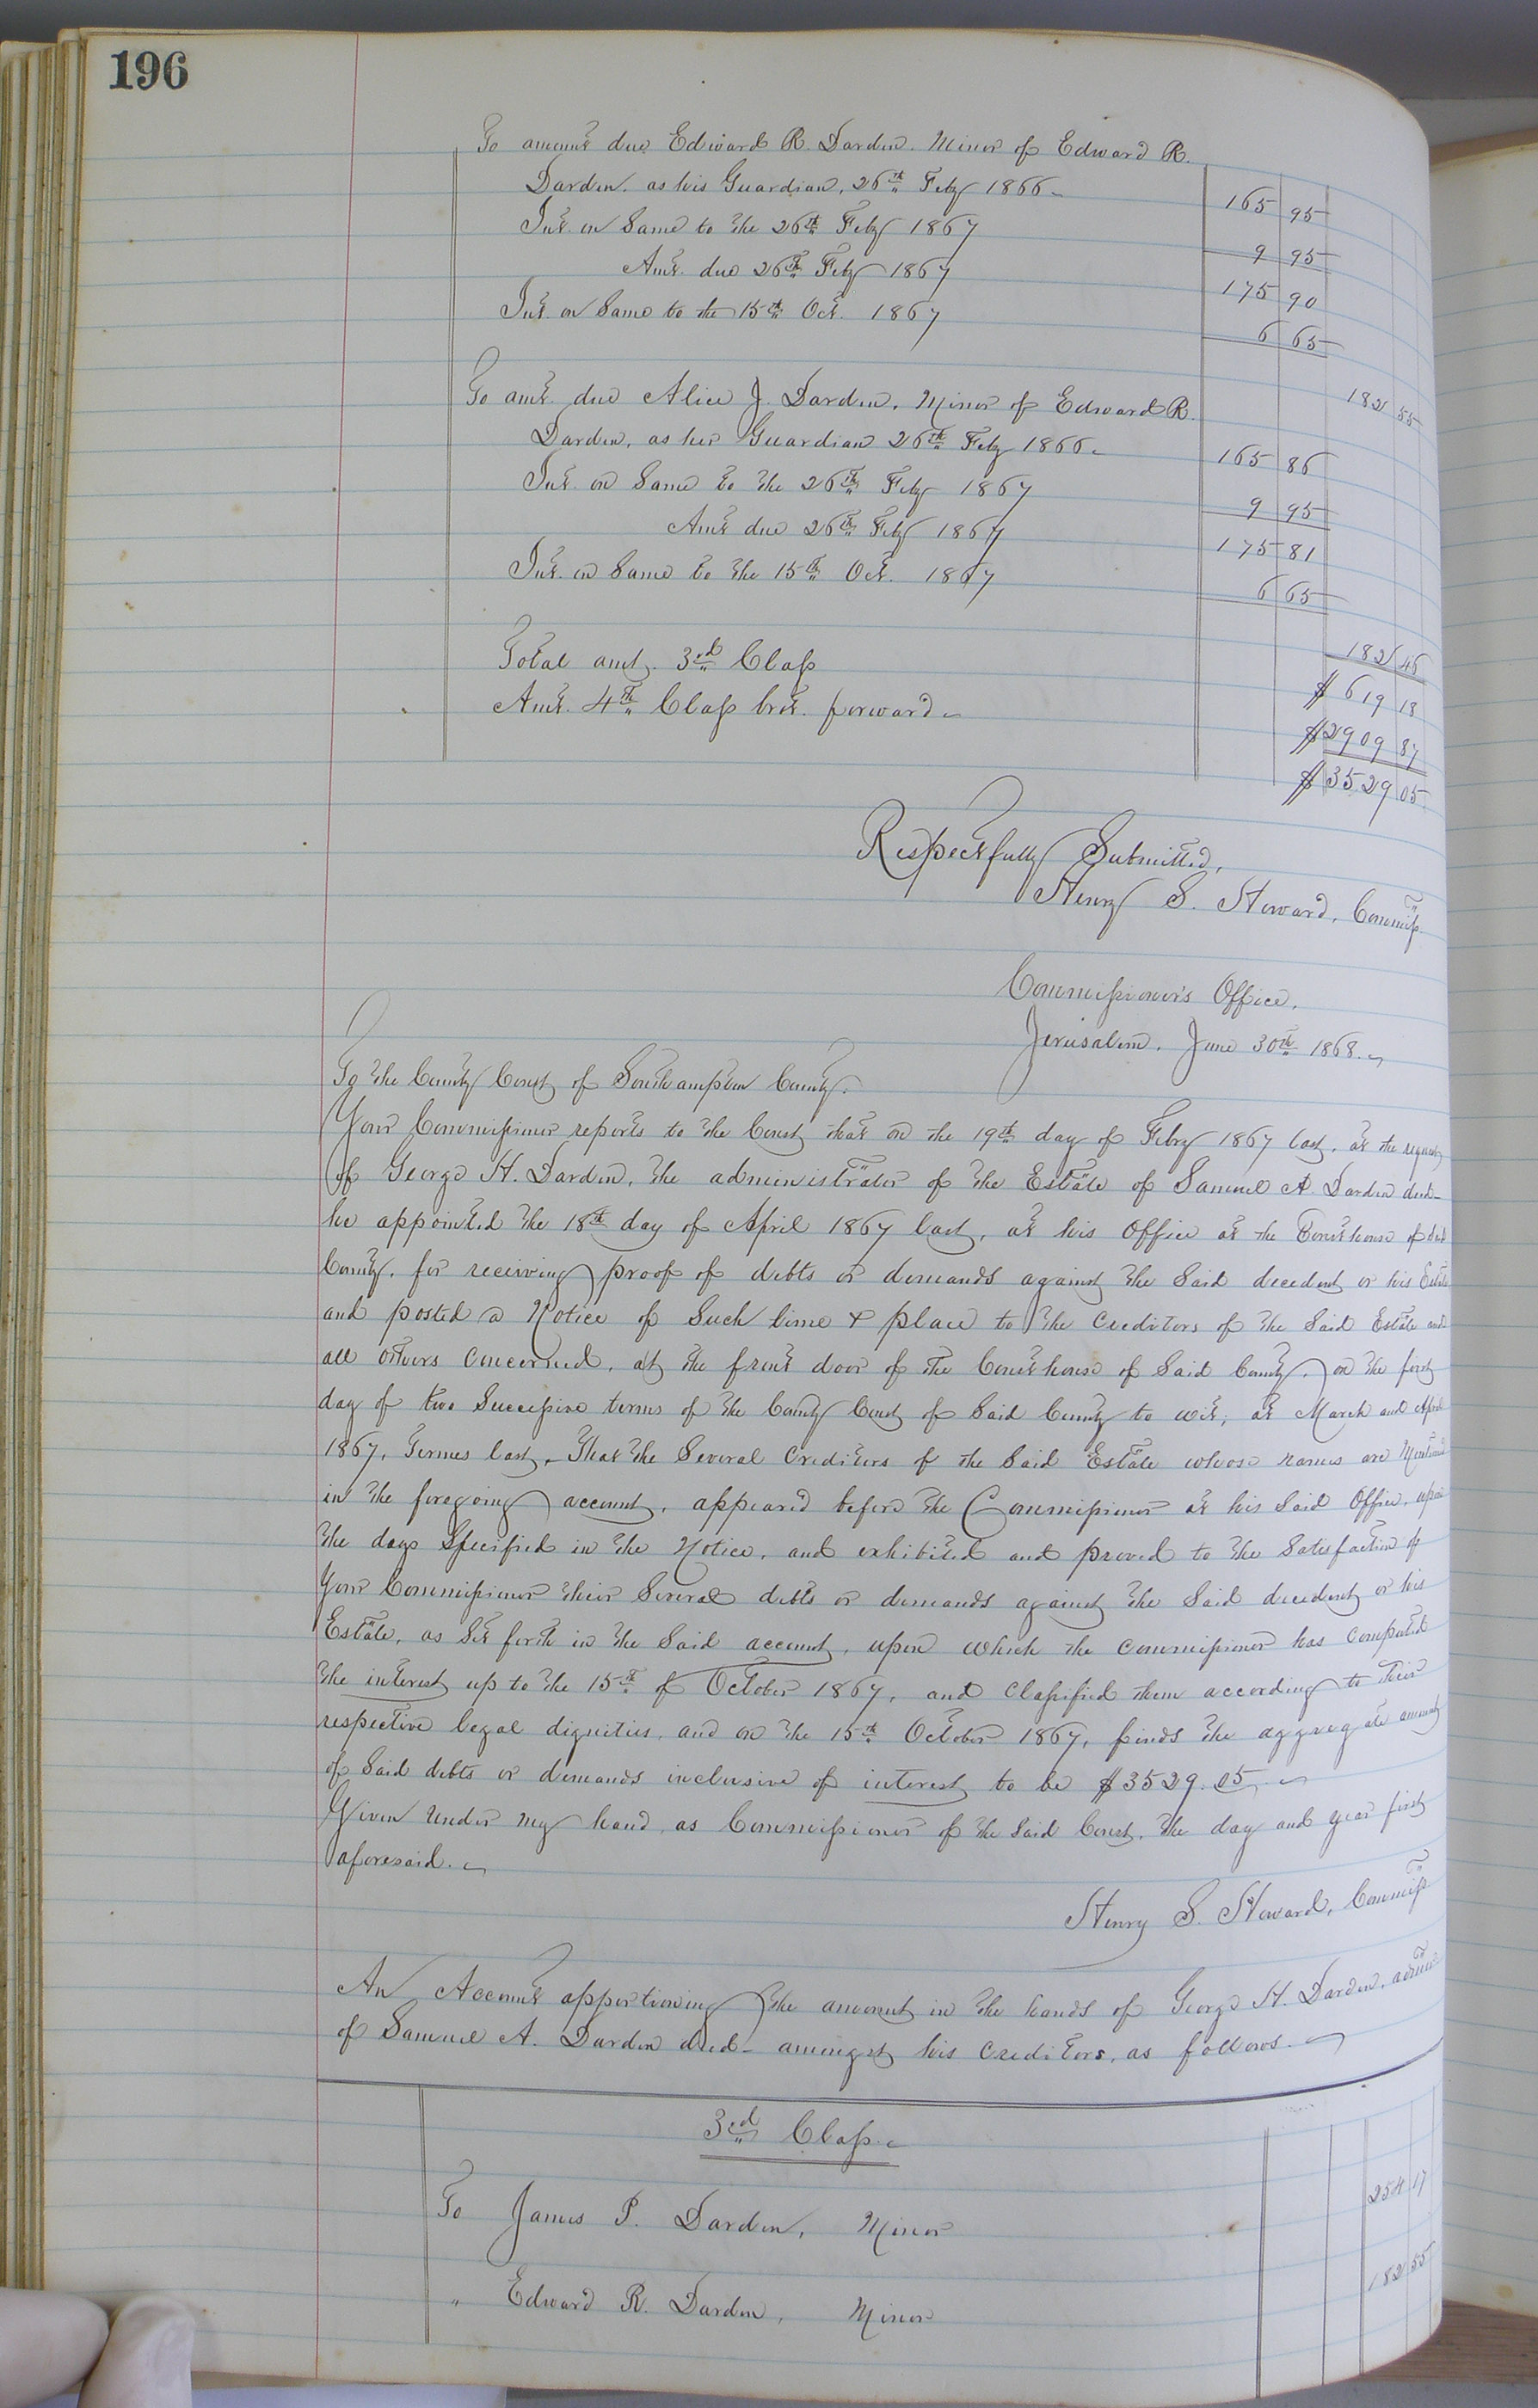 196
To amount due Edward R. Darden. Minor of Edward R.
Darden. as his Guardian, 26th Feby 1866 165 95
Int. on Same to the 26th Feby 1867 9 95
Amt. due 26th Feby 1867 175 90
Int. on Same to the 15th Oct. 1867 6 65
182 55
To amt. due Alice J. Darden, Minor of Edward R.
Darden, as her Guardian 26th Feby 1866. 165 86
Int. on Same to the 26th Feby 1867 9 95
Amt due 26th Feby 1867 175 81
Int. on Same to the 15th Oct. 1867 6 65
182 46
Total amt. 3rd Class $619 18
Amt. 4th Class brot. forward $2909 87
$3529 05
Respectfully Submitted,
Henry S. Howard, Commissr
Commissioner's Office,
Jerusalem. June 30th 1868.
To the County Court of Southampton County.
Your Commissioner reports to the Court, that on the 19th day of Feby 1867 last, at the request
of George H. Darden, the administrator of the Estate of Samuel A. Darden decd
he appointed the 18th day of April 1867 last, at his Office at the Courthouse of Said
County. for receiving proof of debts or demands against the Said decedent or his Estate
and posted a Notice of Such time & place to the Creditors of the Said Estate and
all others Concerned, at the front door of the Courthouse of Said County, on the first
day of two Successive terms of the County Court of Said County to wit; at March and April
1867, Termes last. That the Several Creditors of the Said Estate whose names are Mentioned
in the foregoing account, appeared before the Commissioner at his Said Office, upon
the days Specified in the Notice, and exhibited and proved to the Satisfaction of
Your Commissioner their Several debts or demands against the Said decedent or his
Estate, as Set forth in the Said account, upon which the Commissioner has Computed
the interest up to the 15th of October 1867, and Classified them according to their
respective legal dignities, and on the 15th October 1867, finds the aggregate amount
of Said debts or demands inclusive of interest to be $3529.05.
Given Under my hand, as Commissioner of the Said Court, the day and year first
aforesaid.
Henry S. Howard, Commissr
An Account apportioning the amount in the hands of George H. Darden, admr
of Samuel A. Darden decd amongst his Creditors, as follows.
3rd Class
To James P. Darden, Minor 254 17
" Edward R. Darden, Minor 182 55